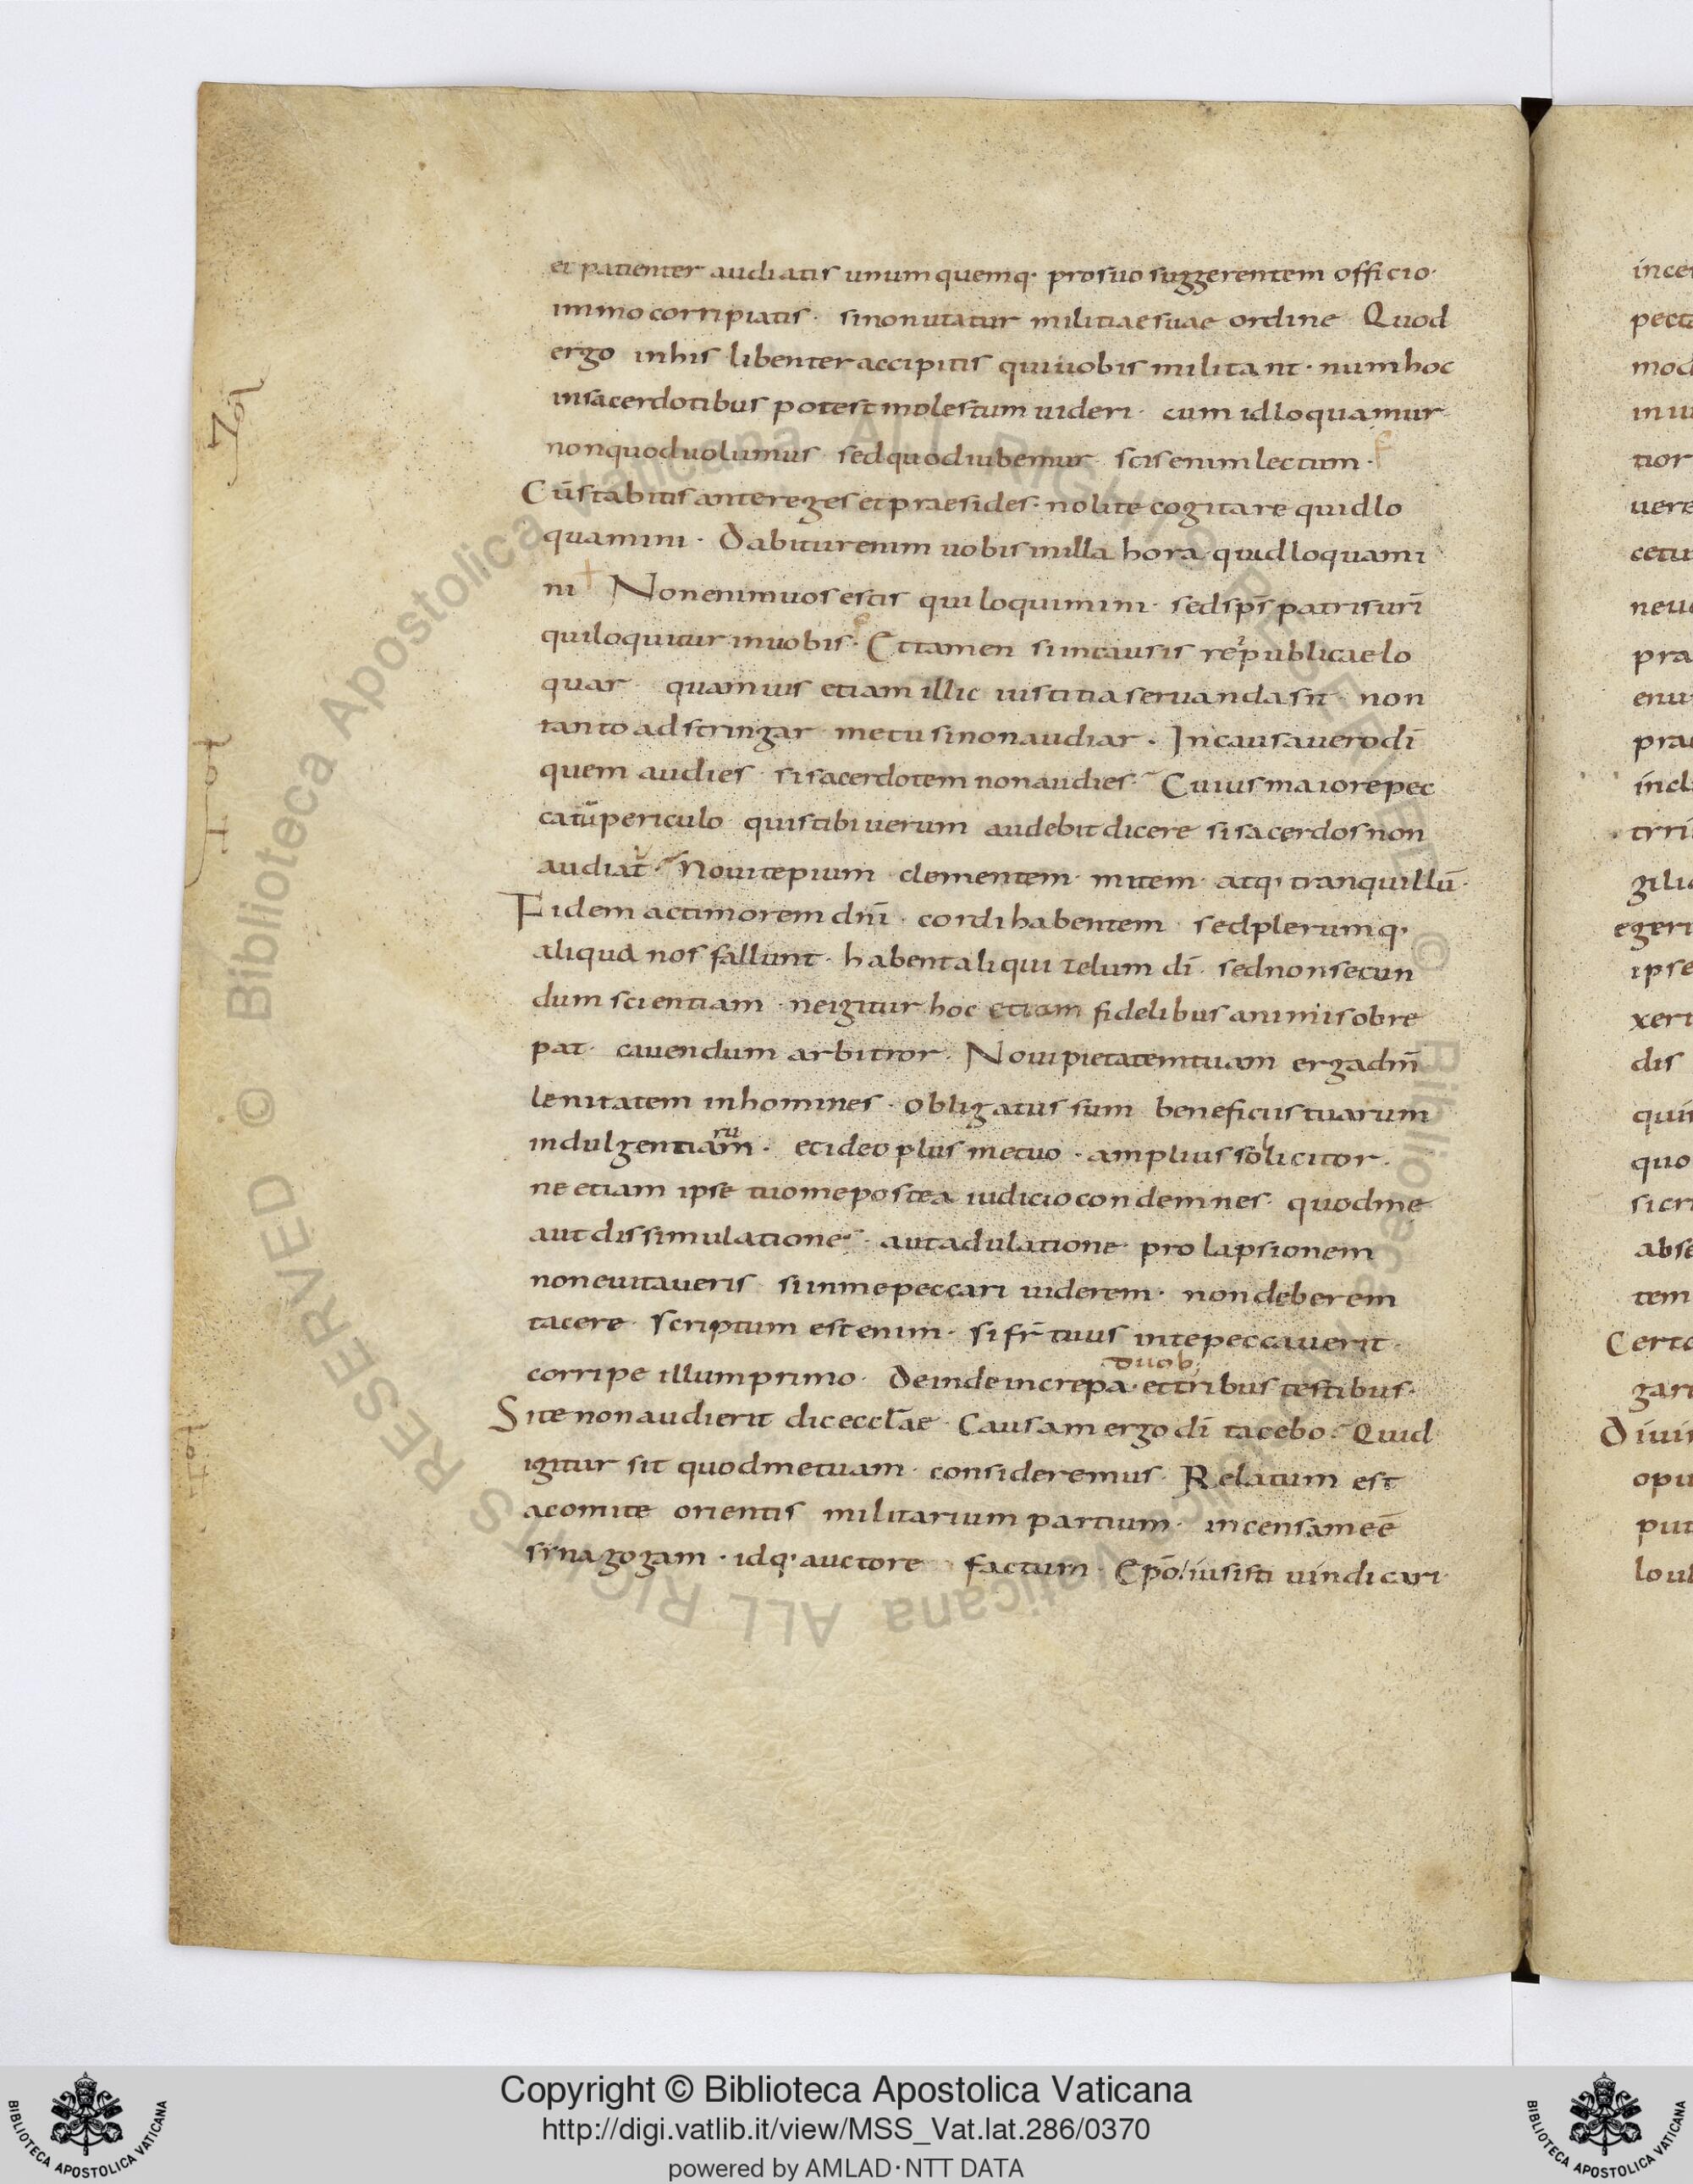 et patienter audiatis unumquemq· pro suo suggerentem officio·
immo corripiatis· si non utatur militiae suae ordine Quod
ergo in his libenter accipitis qui uobis militant· num hoc
in sacerdotibus potest molestum uideri· cum id loquamur
non quod uolumus· sed quod iubemur· scis enim lectum·
Cū stabitis ante reges et praesides· nolite cogitare quid lo
quamini· Dabitur enim uobis in illa hora quid loquami
ni Non enim uos estis qui loquimini· sed sp̄s patris ur̄i
qui loquitur in uobis· Et tamen si in causis rei publicae lo
quar quamuis etiam illic iustitia seruanda sit· non
tanto adstringar metu si non audiar· In causa uero dī
quem audies· si sacerdotem non audies· Cuius maiore pec
catur periculo quis tibi uerum audebit dicere si sacerdos non
audiat· Noui te pium clementem· mitem· atq· tranquillū·
Fidem ac timorem dn̄i· cordi habentem sed plerumq·
aliqua nos fallunt· habent aliqui zelum dī· sed non secun
dum scientiam· ne igitur hoc etiam fidelibus animis obre
pat· cauendum arbitror· Noui pietatem tuam erga dn̄m
lenitatem in homines· obligatus sum beneficiis tuarum
indulgentiarum· et ideo plus metuo· amplius sollicitor·
ne etiam ipse tuo me postea iudicio condemnes· quod me
aut dissimulatione· aut adulatione prolapsionem
non euitaueris si in me peccari uiderem· non deberem
tacere· Scriptum est enim· si fr̄ tuus in te peccauerit·
duob·
corripe illum primo· Deinde increpa· et tribus testibus·
Si te non audierit dic eccl̄ae· Causam ergo dī tacebo· Quid
igitur sit quod metuam· consideremus· Relatum est
a comite orientis militarium partium· incensam eē
synagogam· idq· auctore factum· Ep̄o iusisti uindicari·
Copyright © Biblioteca Apostolica Vaticana
http://digi.vatlib.it/view/MSS_Vat.lat.286/0370
powered by AMLAD·NTT DATA